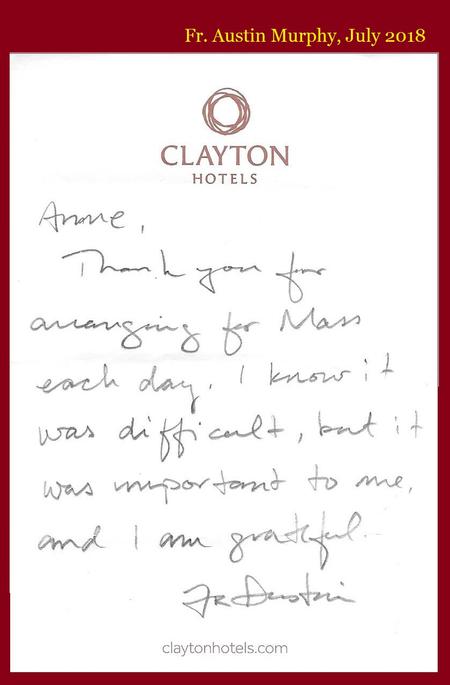 Fr. Austin Murphy, July 2018
CLAYTON
HOTELS
Anne,
Thank you for
arranging for Mass
each day. I know it
was difficult, but it
was important to me,
and I am grateful.
Fr Austin
claytonhotels.com